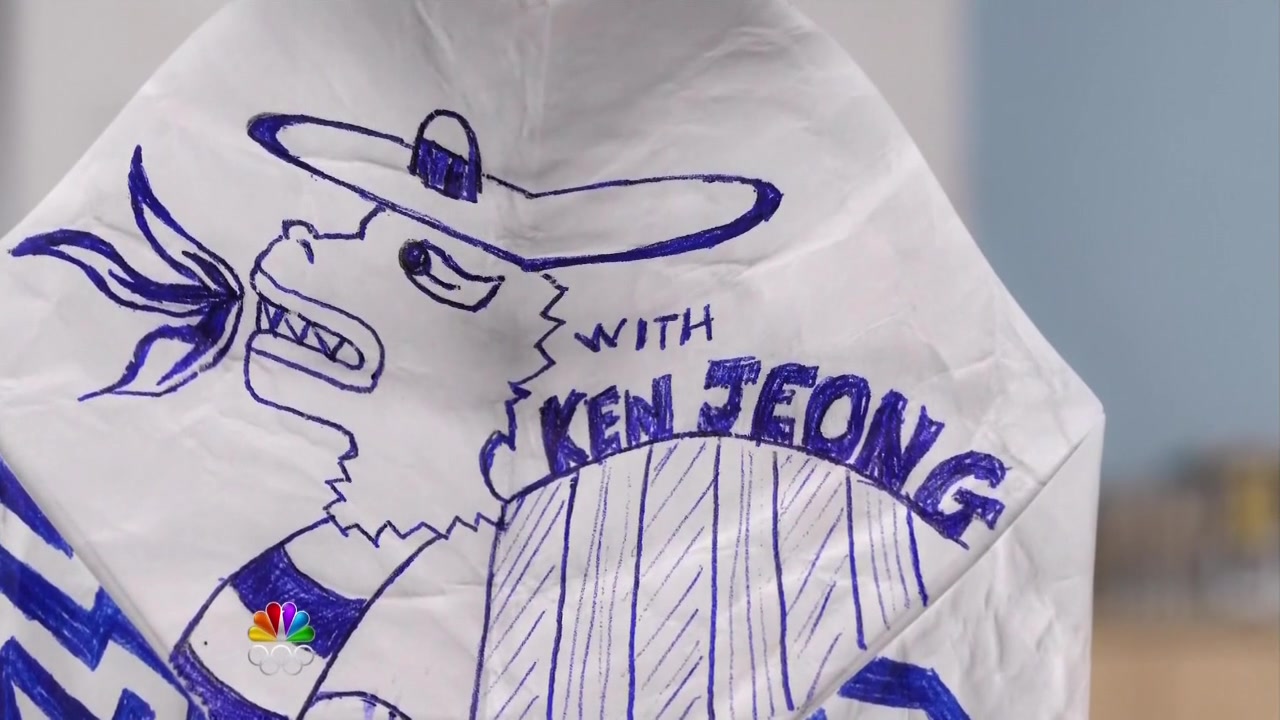 WITH
KEN JEONG